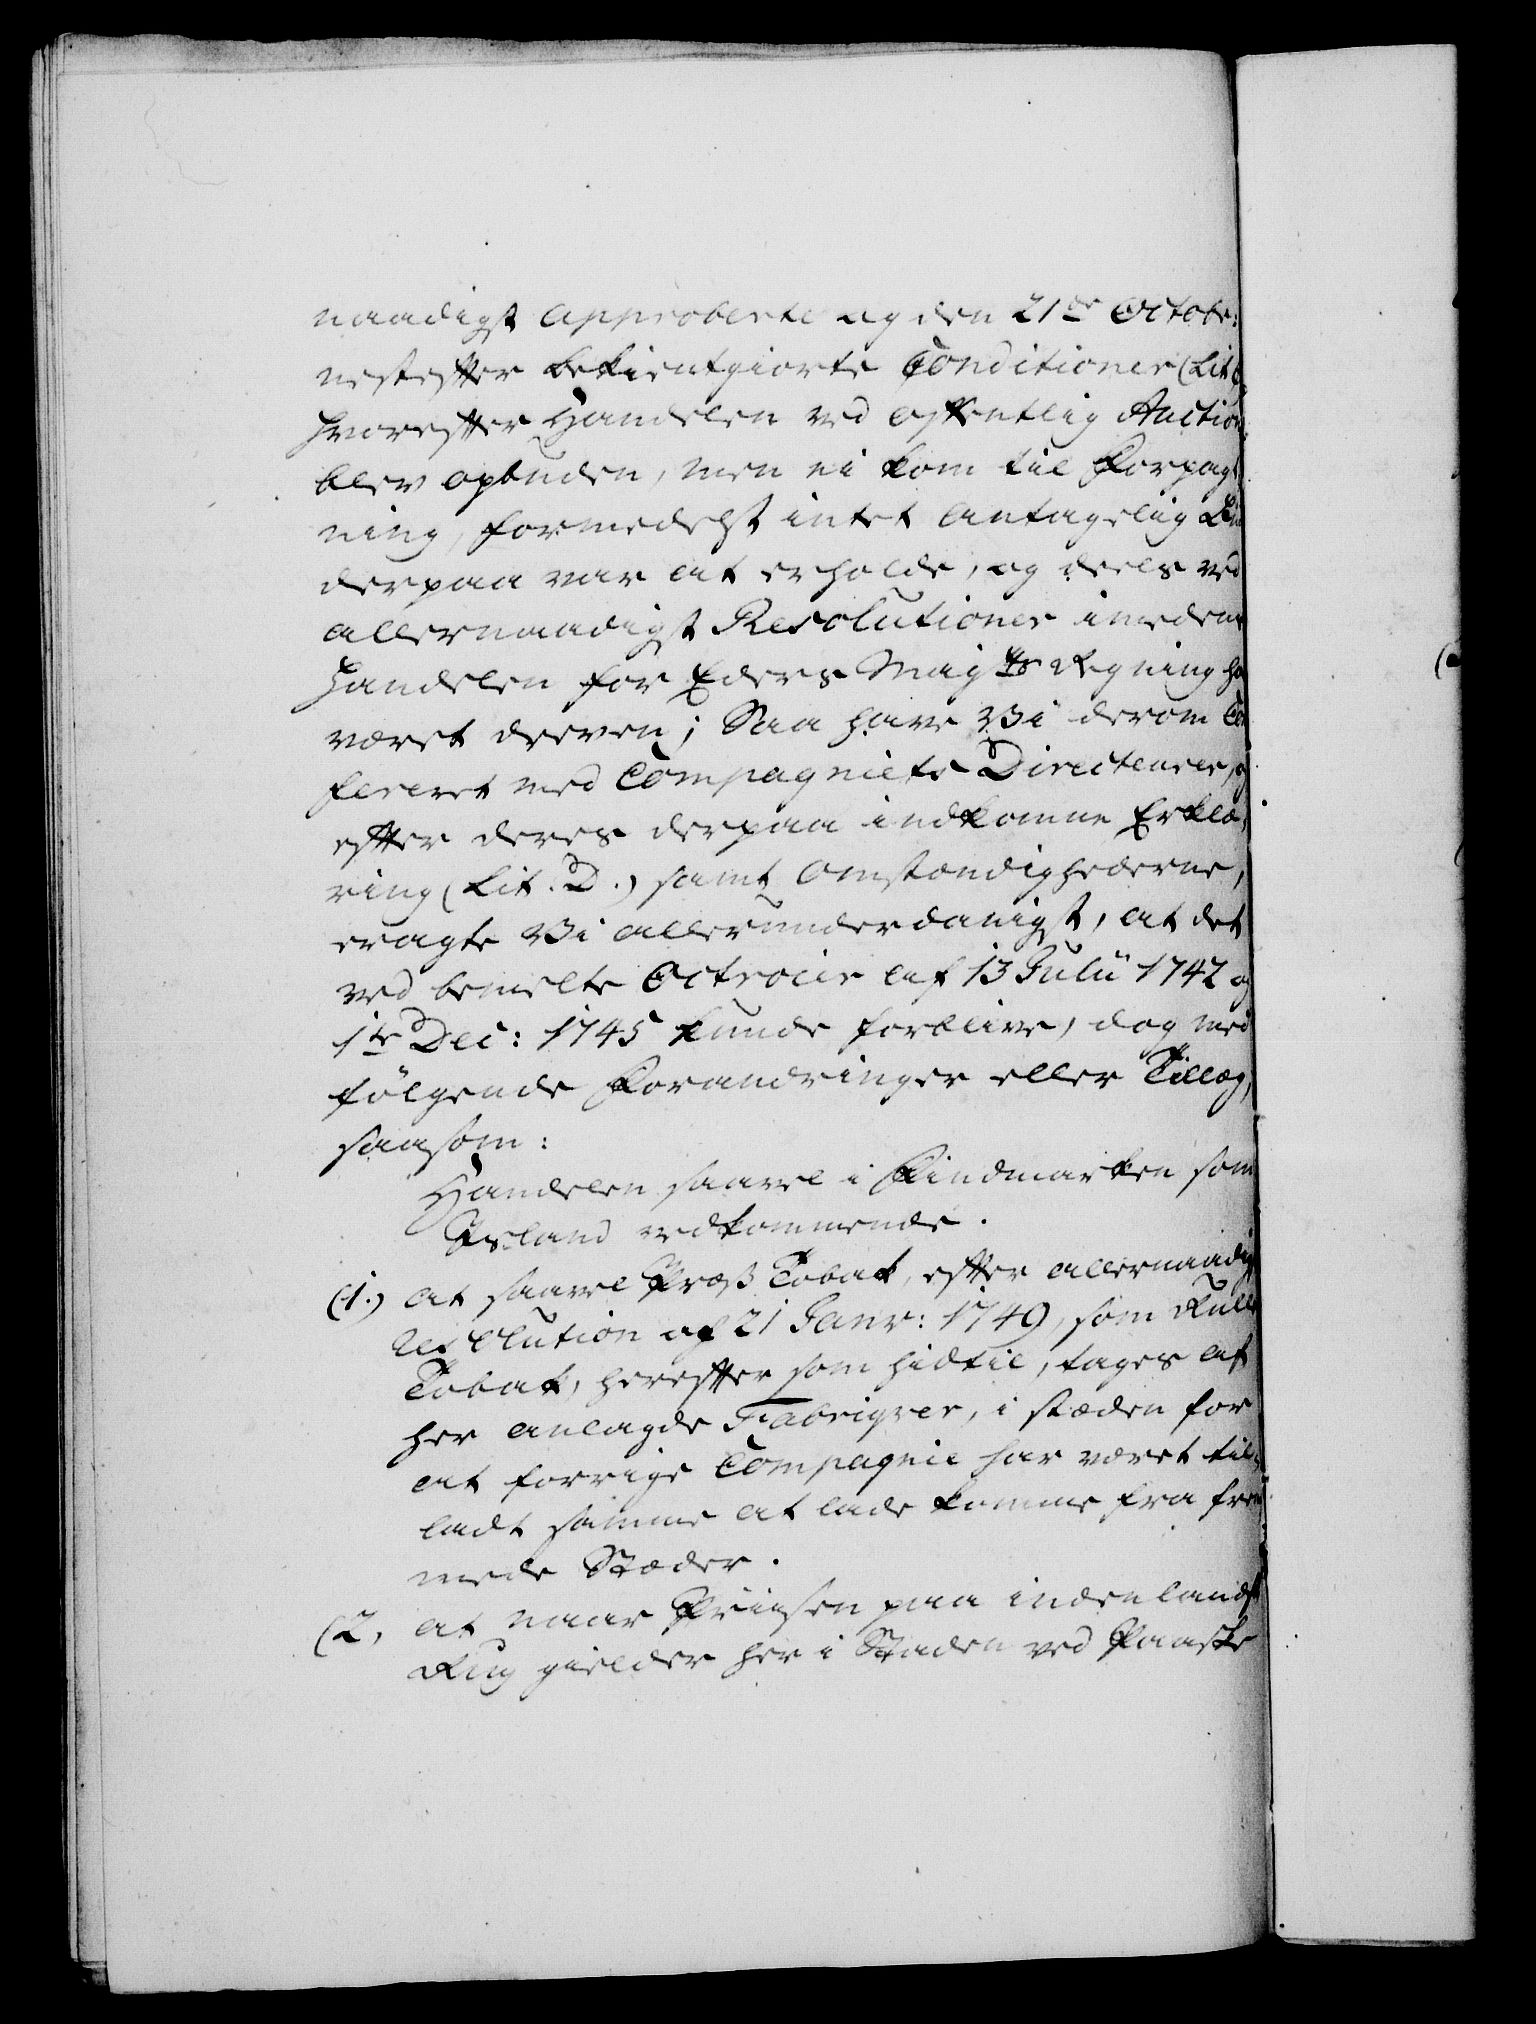 naadigst approberte og den 21de Octobr:
nestefter bekientgiorte Conditioner (Lit C
hvorefter Handelen ved offentlig Auction
blev opbuden, men ei kom til Forpagt-
ning, formedelst intet antagelig Bud
derpaa var at erholde, og deels ved
allernaadigst Resolutioner imedens
Handelen for Eders Mayts Regning ha
været dreven; Saa have Vi derom Con
fereret med Compagniets Directeurer, og
efter deres derpaa indkomne Erklæ-
ring (Lit. D.) samt Omstændighederne,
eragte Vi allerunderdanigst, at det
ved bemelte Octroier af 13 Julii 1742 og
1te Dec: 1745 kunde forblive, dog med
følgende Forandringer eller Tillæg,
saasom:
Handelen saavel i Findmarken som
Island vedkommende.
(1.) at saavel Præs Tobak, efter allernaadigst
Resolution af 21 Janr: 1749, som Rulle
Tobak, herefter som hidtil, tages af
her anlagde Fabriqver, i stæden for
at forrige Compagnie har været til-
ladt samme at lade komme fra frem-
mede Stæder.
(2, at naar Priisen paa indenlandsk
Rug gielder her i Staden ved Paaske